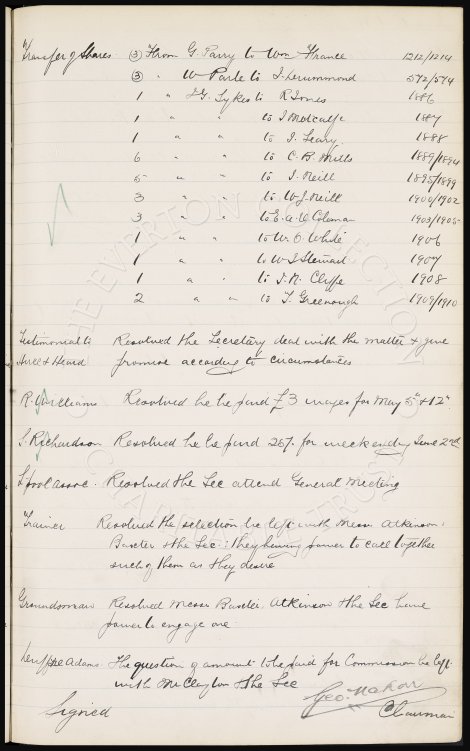 Transfer of Shares (3) From G. Parry to Wm France 1212/1214
(3) " W Parle to J. Drummond 572/574
1 " J.G. Sykes to R Jones 1886
1 " " to J Metcalfe 1887
1 " " to J. Leary 1888
6 " " to C. B. Mills 1889/1894
5 " " to J. Neill 1895/1899
3 " " to W J. Neill 1900/1902
3 " " to E. A. W Coleman 1903/1905
1 " " to W. O. White 1906
1 " " to W J. Stewart 1907
1 " " to J. N. Cliffe 1908
2 " " to T. Greenough 1909/1910
Testimonial to Resolved the Secretary deal with the matter & give
& Heard promise according to circumstances
R. Williams Resolved he be paid £3 wages for May 5th & 12th
J. Richardson Resolved he be paid 25/- for week ending June 2nd
L'pool assoc. Resolved the Sec attend General Meeting
Trainer Resolved the selection be left with Messrs Atkinson,
Baxter & the Sec: they having power to call together
such of them as they desire
Groundsman Resolved Messrs Baxter, Atkinson & the Sec have
power to engage one
Adams The question of amount to be paid for Commission be left
with Mr Clayton & the Sec
Signed Geo. Mahon
Chairman
THE EVERTON COLLECTION
CHARITABLE TRUST